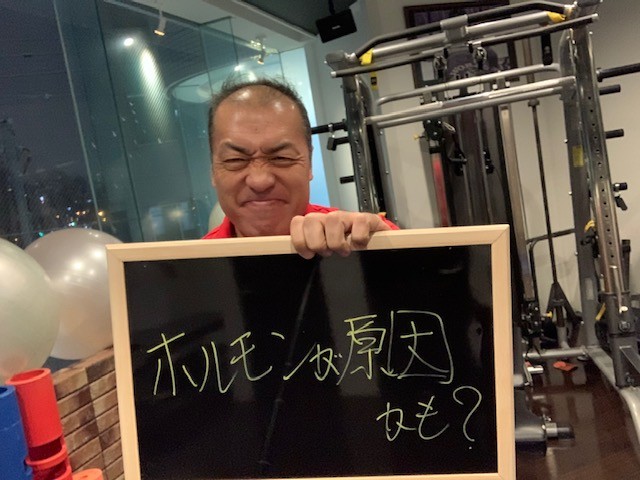 ホルモンが原因
かも?